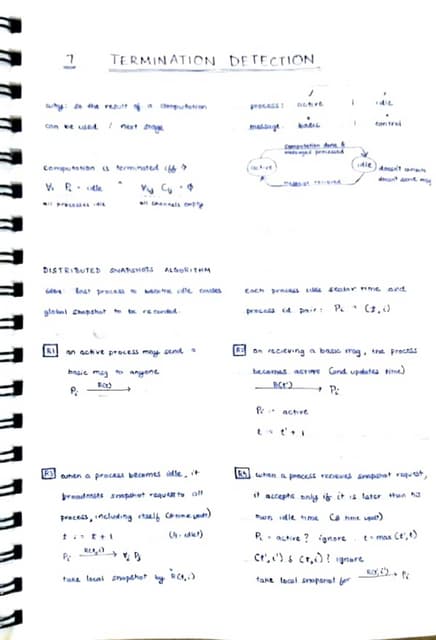 7 TERMINATION DETECTION
why: so the result of a computation
can be used / next stage
process: active | idle
message: basic | control
Computation done &
messages processed
active
idle
doesn't compute
doesn't send msg
message received
computation is terminated iff →
∀i Pi = idle ^ ∀ij Cij = ∅
all processes idle all channels empty
DISTRIBUTED SNAPSHOTS ALGORITHM
idea: last process to become idle causes
global snapshot to be recorded.
each process uses scalar time and
process id pair: Pi = (t, i)
R1 an active process may send a
basic msg to anyone
Pi B(t) →
R2 on recieving a basic msg, the process
becomes active (and updates time)
B(t') → Pi
Pi = active
t = t' + 1
R3 when a process becomes idle, it
broadcasts snapshot request to all
process, including itself
t := t + 1
Pi R(t,i) → ∀j Pj
take local snapshot by R(t,i)
R4 when a process recieves snapshot request,
it accepts only if it is later than his
own idle time
Pi = active? ignore t = max(t',t)
(t',i') & (t,i)? ignore
take local snapshot for R(t',i') → Pi